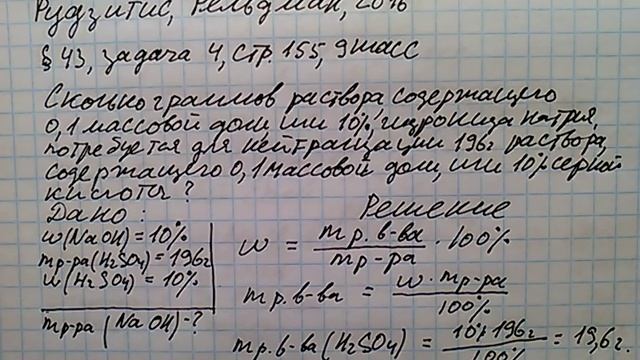 Рудзитис, Фельдман, 2016
§ 43, задача 4, стр. 155, 9 класс
Сколько граммов раствора содержащего
0,1 массовой доли или 10%, гидроксида натрия,
потребуется для нейтрализации 196г раствора,
содержащего 0,1 массовой доли, или 10% серной
кислоты?
Дано: Решение
w(NaOH) = 10%
mр-ра(H₂SO₄) = 196г
w(H₂SO₄) = 10%
mр-ра (NaOH) - ?
w = mр.в-ва / mр-ра · 100%
mр.в-ва = w · mр-ра / 100%
mр.в-ва (H₂SO₄) = 10% · 196г / 100% = 19,6г.